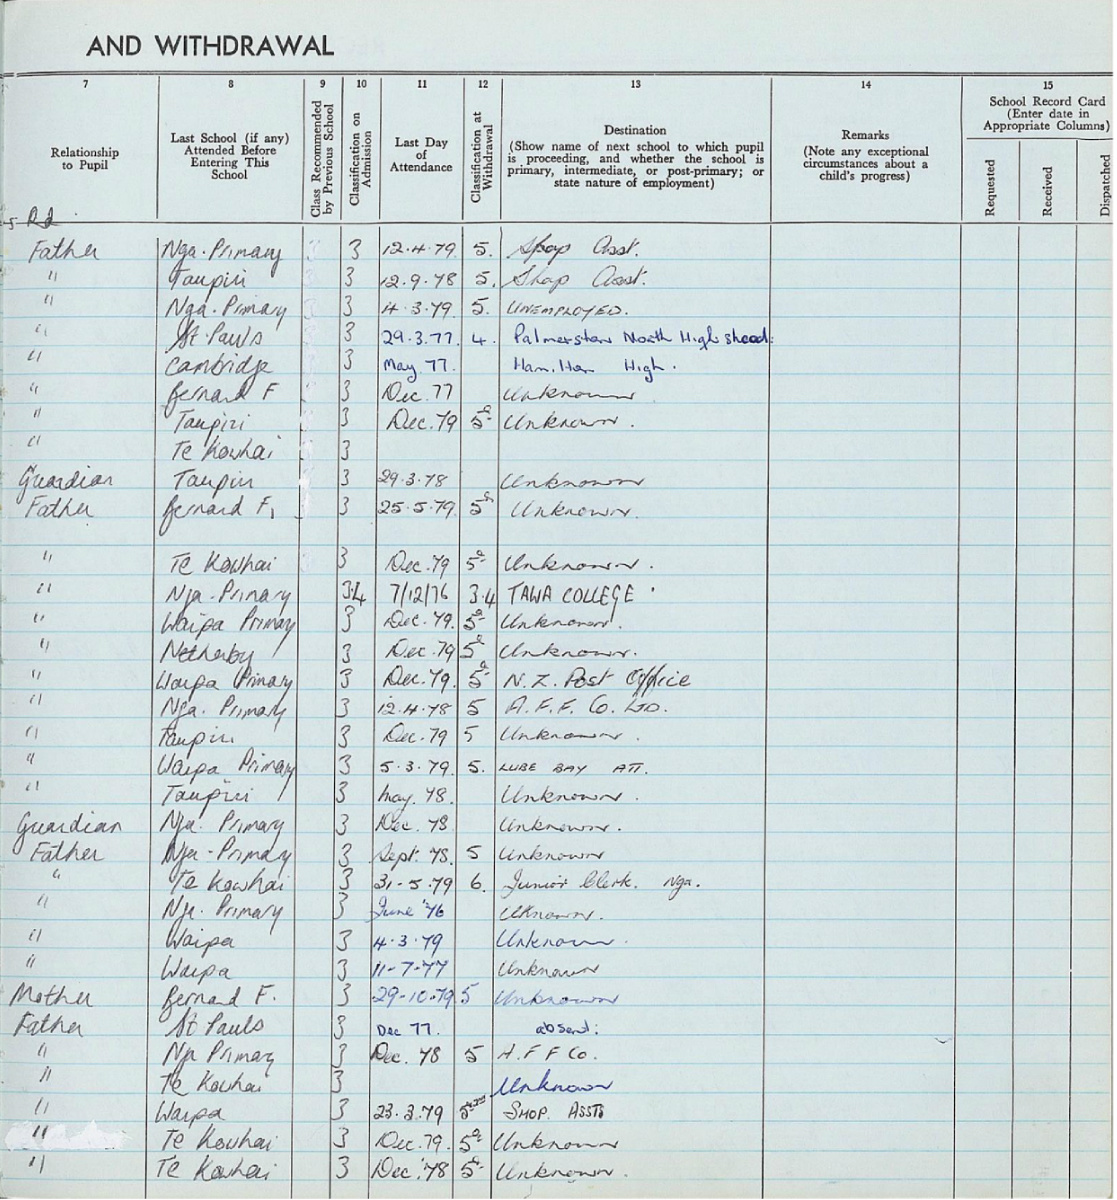 AND WITHDRAWAL
7 8 9 10 11 12 13 14 15
Relationship to Pupil
Last School (if any) Attended Before Entering This School
Class Recommended by Previous School
Classification on Admission
Last Day of Attendance
Classification at Withdrawal
Destination (Show name of next school to which pupil is proceeding, and whether the school is primary, intermediate, or post-primary; or state nature of employment)
Remarks (Note any exceptional circumstances about a child's progress)
School Record Card (Enter date in Appropriate Columns)
Requested Received Dispatched
Rd
Father Nga. Primary 3 12.4.79 5. Shop Asst.
" Taupiri 3 12.9.78 5. Shop Asst.
" Nga. Primary 3 4.3.79 5. UNEMPLOYED.
" St. Pauls 3 29.3.77. 4. Palmerston North High School.
" Cambridge 3 May 77. Hamilton High.
" Bernard F 3 Dec. 77 Unknown
" Taupiri 3 Dec. 79 5 Unknown.
" Te Kowhai 3
Guardian Taupiri 3 29.3.78 Unknown
Father Bernard F. 3 25.5.79. 5 Unknown.
" Te Kowhai 3 Dec. 79 5 Unknown.
" Nga. Primary 3.4 7/12/76 3.4 TAWA COLLEGE
" Waipa Primary 3 Dec. 79. 5 Unknown.
" Netherby 3 Dec. 79 5 Unknown.
" Waipa Primary 3 Dec. 79. 5 N.Z. Post Office
" Nga. Primary 3 12.4.78 5 A.F.F. Co. LTD.
" Taupiri 3 Dec. 79 5 Unknown.
" Waipa Primary 3 5.3.79. 5. LUBE BAY ATT.
" Taupiri 3 May. 78. Unknown.
Guardian Nga. Primary 3 Dec. 78 Unknown.
Father Nga. Primary 3 Sept. 78. 5 Unknown
" Te Kowhai 3 31-5.79 6. Junior Clerk. Nga.
" Nga. Primary 3 June '76 Uknown.
" Waipa 3 4.3.79 Unknown.
" Waipa 3 11-7-77 Unknown
Mother Bernard F. 3 29-10-79 5 Unknown
Father St Pauls 3 Dec 77. absent.
" Nga Primary 3 Dec. 78 5 A.F F Co.
" Te Kowhai 3 Unknown
" Waipa 3 23.3.79 5 SHOP. ASST
" Te Kowhai 3 Dec. 79. 5 Unknown
" Te Kowhai 3 Dec '78 5 Unknown.